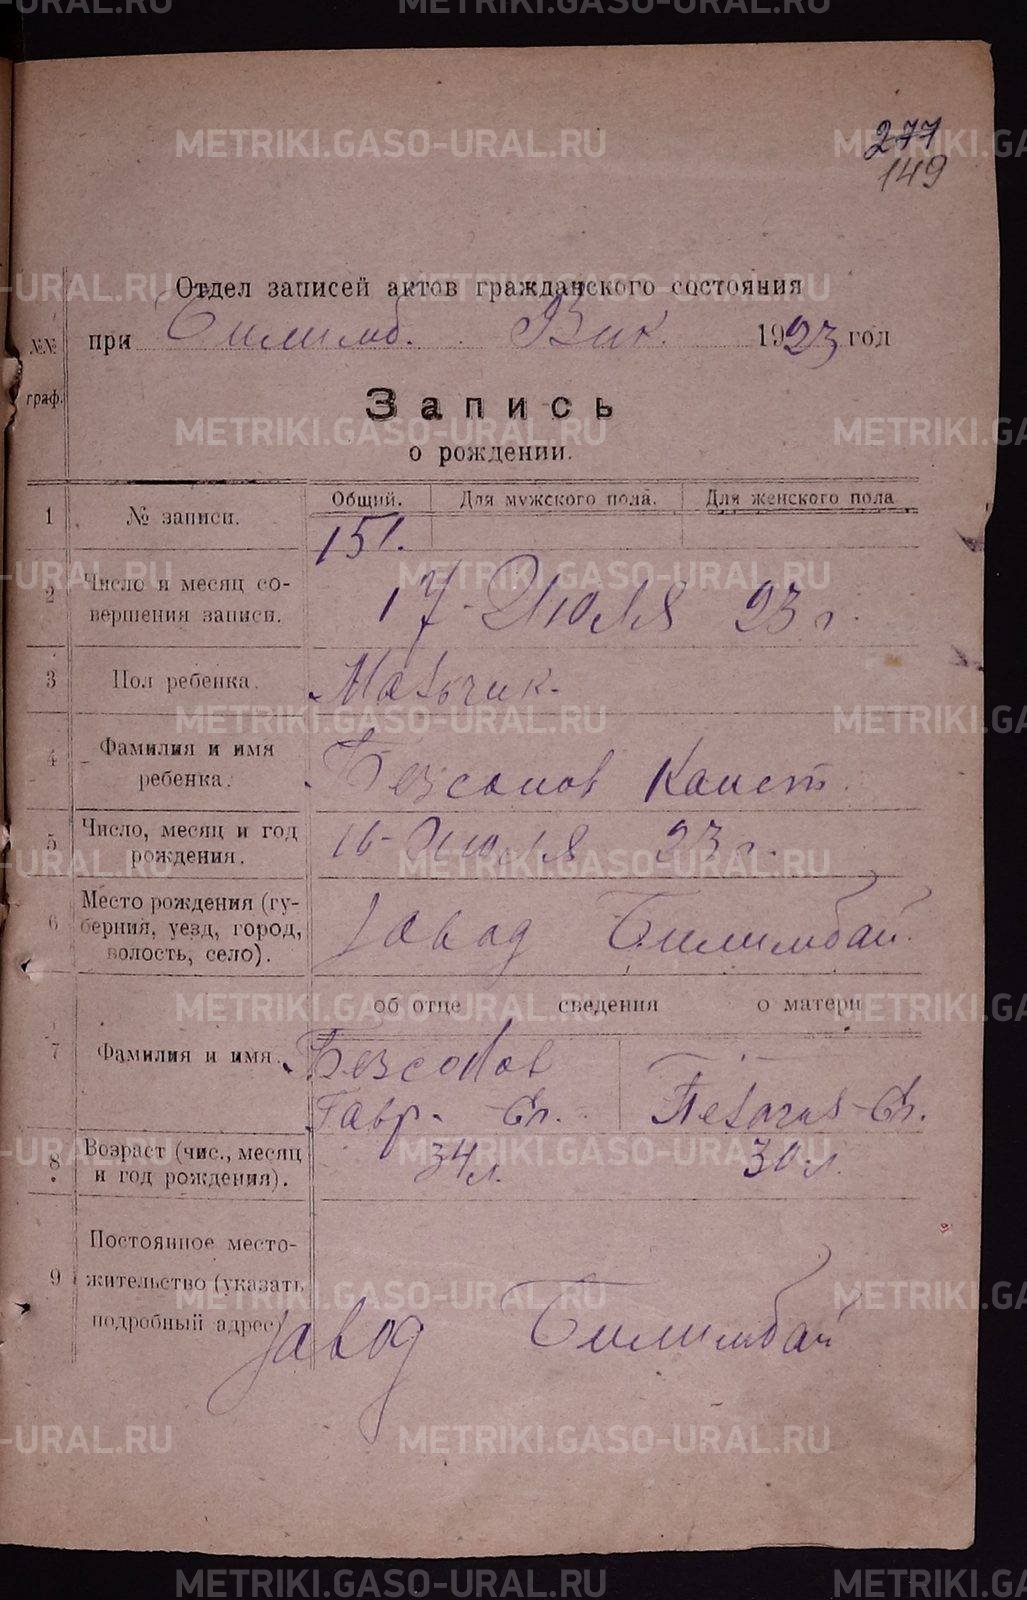 277
149
Отдел записей актов гражданского состояния
№№ граф.
при Билимб. Вик. 1923 год
Запись
о рождении.
Общий. Для мужского пола. Для женского пола
1 № записи. 151.
2 Число и месяц со-
вершения записи. 17 - Июля 23 г.
3 Пол ребенка. Мальчик.
4 Фамилия и имя
ребенка. Безсонов Конст.
5 Число, месяц и год
рождения. 16 - Июля 23 г.
6 Место рождения (гу-
берния, уезд, город,
волость, село). завод Билимбай.
об отце сведения о матери
7 Фамилия и имя. Безсонов
Гавр. Ст.
8 Возраст (чис., месяц
и год рождения). 34 л. 30 л.
Постоянное место-
9 жительство (указать
подробный адрес) завод Билимбай
METRIKI.GASO-URAL.RU